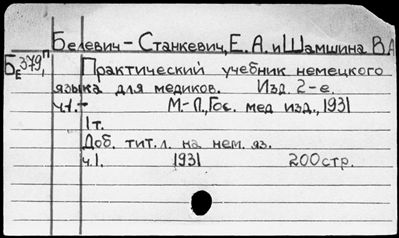 Белевич-Станкевич, Е. А. и Шамшина В.А
Бе 379, П Практический учебник немецкого
языка для медиков. Изд. 2-е.
ч.1.- М-Л., Гос. мед изд., 1931
1 т.
Доб. тит. л. на нем. яз.
ч.1. 1931 200 стр.